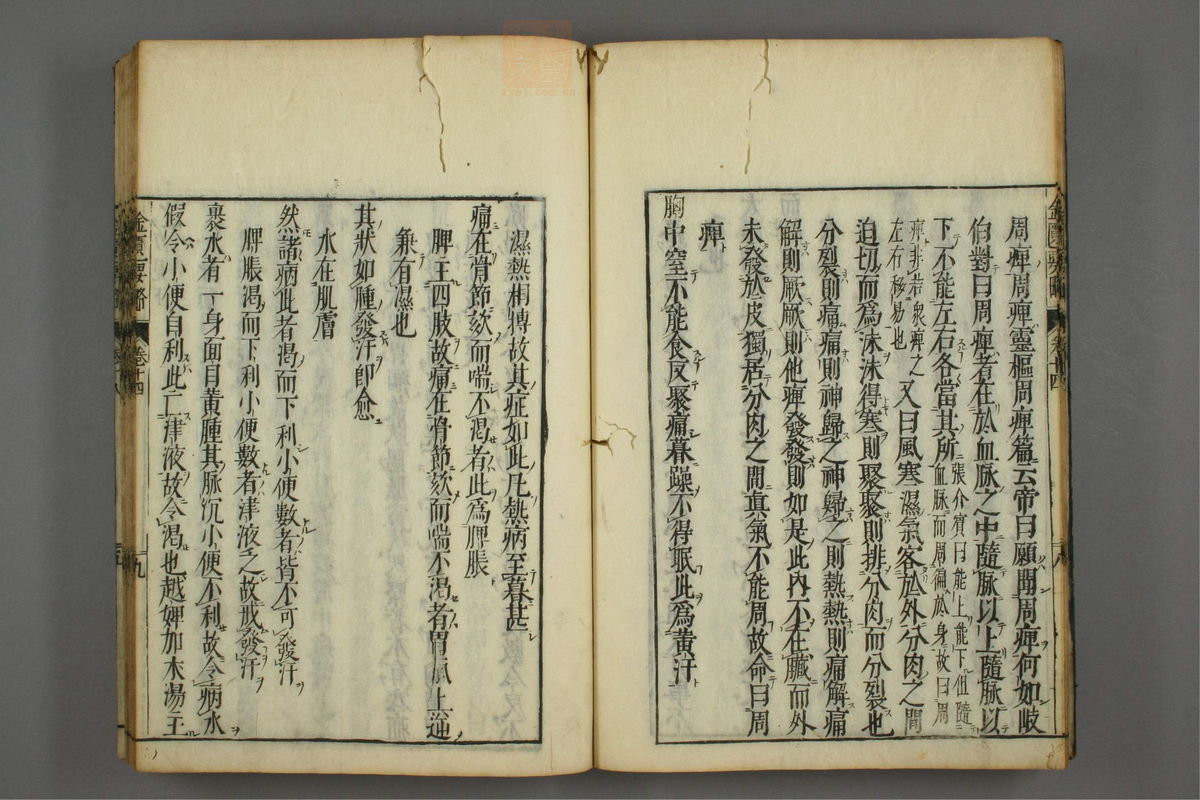 周痺周痺靈樞周痺篇云帝曰願聞周痺何如歧
伯對曰周痺者在於血脉之中隨脉以上隨脉以
下不能左右各當其所張介賓曰能上能下但隨血脉而周徧於身故曰周
痺非若衆痺之左右移易也又曰風寒濕氣客於外分肉之間
迫切而爲沫沫得寒則聚聚則排分肉而分裂也
分裂則痛痛則神歸之神歸之則熱熱則痛解痛
解則厥厥則他痺發發則如是此内不在臟而外
未發於皮獨居分肉之間眞氣不能周故命曰周
痺
胸中窒不能食反聚痛暮躁不得眠此爲黄汗
濕熱相搏故其症如此凡熱病至暮甚
痛在骨節欬而喘不渴者此爲脾脹
脾主四肢故痛在骨節欬而喘不渴者胃氣上逆
兼有濕也
其狀如腫發汗即愈
水在肌膚
然諸病此者渴而下利小便數者皆不可發汗
脾脹渴而下利小便數者津液乏故戒發汗
裹水者一身面目黄腫其脉沉小便不利故令病水
假令小便自利此亡津液故令渴也越婢加朮湯主
金匱要略
卷十四
九